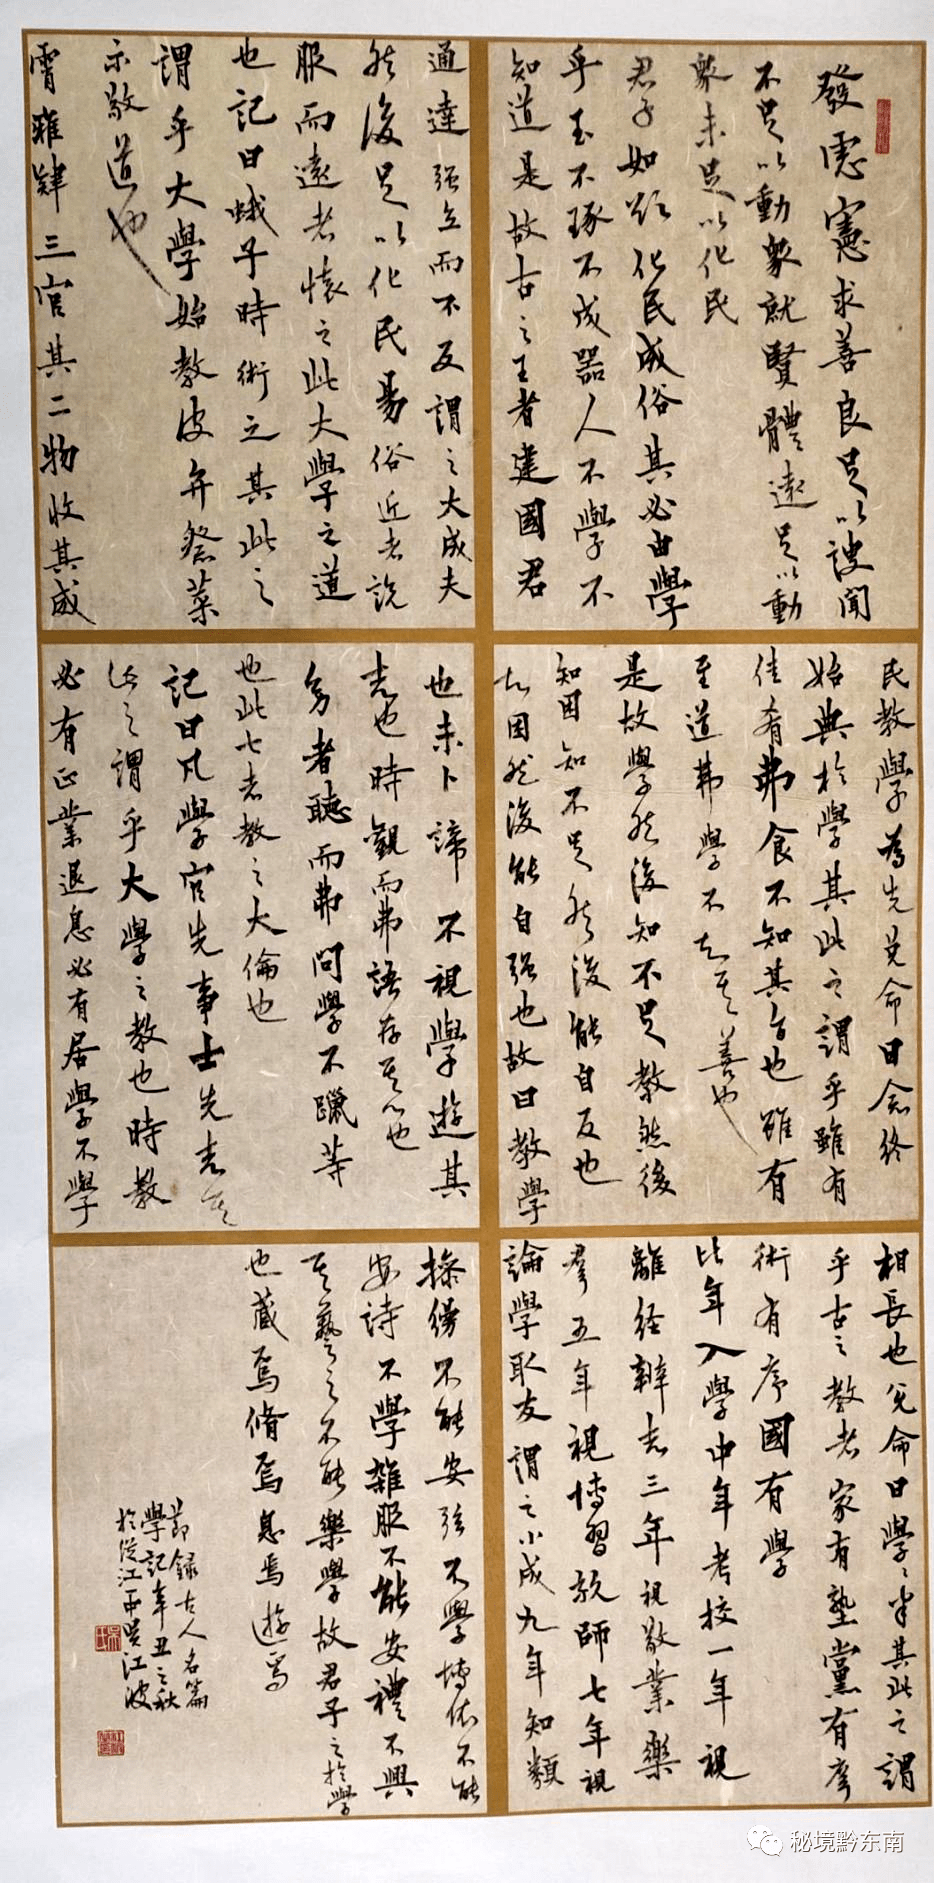 發慮憲求善良足以謏聞
不足以動衆就賢體遠足以動
衆未足以化民
君子如欲化民成俗其必由學
乎玉不琢不成器人不學不
知道是故古之王者建國君
民教學為先兌命曰念終
始典於學其此之謂乎雖有
佳肴弗食不知其旨也雖有
至道弗學不知其善也
是故學然後知不足教然後
知困知不足然後能自反也
知困然後能自强也故曰教學
相長也兌命曰學〻半其此之謂
乎古之教者家有塾黨有庠
術有序國有學
比年入學中年考校一年視
離経辨志三年視敬業樂
羣五年視博習親師七年視
論學取友謂之小成九年知類
通達强立而不反謂之大成夫
然後足以化民易俗近者説
服而遠者懷之此大學之道
也記曰蛾子時術之其此之
謂乎大學始教皮弁祭菜
示敬道也
宵雅肄三官其二物收其威
也未卜諦不視學遊其
志也時觀而弗語存其心也
幼者聽而弗問學不躐等
也此七者教之大倫也
記曰凡學官先事士先志其
此之謂乎大學之教也時教
必有正業退息必有居學不學
操縵不能安弦不學博依不能
安詩不學雜服不能安禮不興
其藝之不能樂學故君子之於學
也藏焉脩焉息焉遊焉
節録古人名篇
學記辛丑之秋
於從江吴江波
秘境黔东南